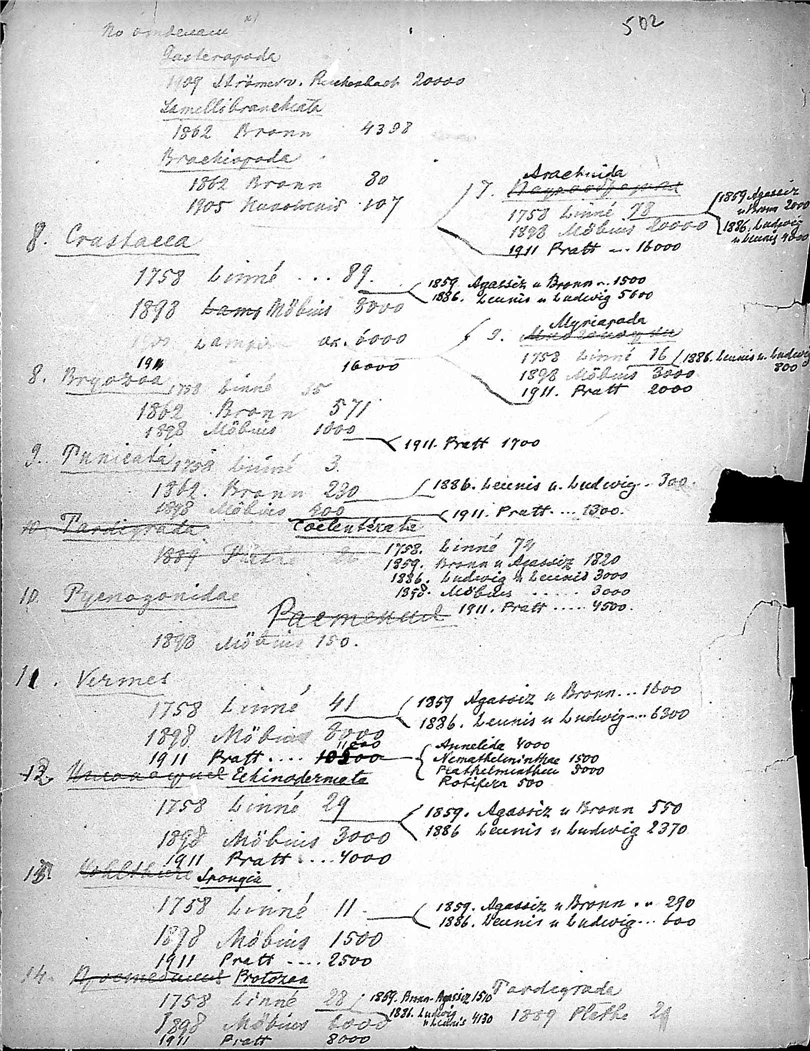 502
По отделам x)
Gasteropoda
1909 Strömer v. Reichenbach 20000
Lamellibranchiata
1862 Bronn 4398
Brachiopoda
1862 Bronn 80
1905 107
7. Arachnida
1758 Linné 78
1859 Agassiz u Bronn 2000
1886. Ludwig u Leunis 4000
1898 Möbius 20000
1911 Pratt — 16000
8. Crustacea
1758 Linné ... 89.
1859. Agassiz u Bronn .. 1500
1886. Leunis u Ludwig 5600
1898 Möbius 8000
6000
1911 16000
9. Myriapoda
1758 Linné 16
1886. Leunis u. Ludwig 800
1898 Möbius 3000
1911. Pratt 2000
8. Bryozoa
1758 Linné 35
1862 Bronn 571
1898 Möbius 1000
1911. Pratt 1700
9. Tunicata
1758 Linné 3.
1862. Bronn 230
1886. Leunis u. Ludwig .. 300.
1898 Möbius 400
1911. Pratt.... 1300.
10 Tardigrada
Coelenterata
1889
1758. Linné 74
1859. Bronn u Agassiz 1820
1886. Ludwig u Leunis 3000
1898. Möbius ...... 3000
1911. Pratt ..... 4500.
10. Pycnogonidae
1898 Möbius 150.
11. Vermes
1758 Linné 41
1859 Agassiz u Bronn... 1600
1886. Leunis u Ludwig... 6300
1898. Möbius 8000
1911 Pratt ....
Annelida 4000
Nemathelminthae 1500
Plathelminthae 5000
Rotifera 500
12. Echinodermata
1758 Linné 29
1859. Agassiz u Bronn 550
1886 Leunis u Ludwig 2370
1898 Möbius 3000
1911 Pratt .... 4000
13. Spongia
1758 Linné 11
1859. Agassiz u Bronn .. 290
1886. Leunis u Ludwig... 600
1898 Möbius 1500
1911 Pratt .... 2500
14. Protozoa
1758 Linné 28
1859. Bronn-Agassiz 150
1886. Ludwig u Leunis 4130
1898 Möbius 6000
1911 Pratt 8000
Tardegrada
1889 Plathe